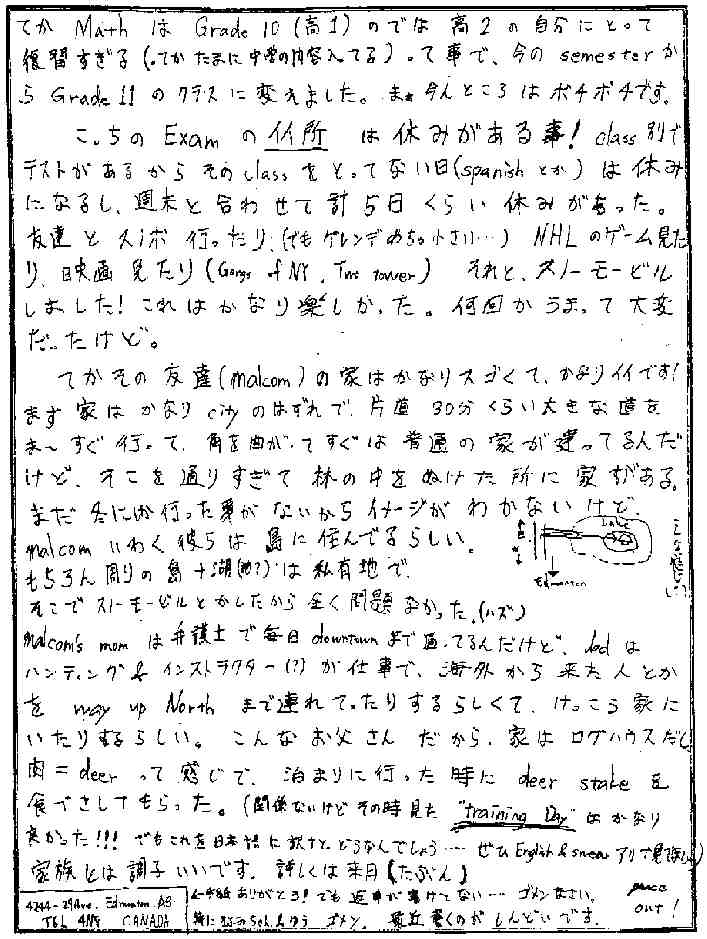 てか Math は Grade 10 (高1) のでは 高2 の 自分にとって
復習すぎる (ってか たまに 中学の内容入ってる) って事で、今の semester か
ら Grade 11 の クラス に 変えました。ま 今んところは ボチボチです。
こっちの Exam の イイ所 は 休みがある事! class 別で
テストがあるから その class を とってない日 (spanish とか) は 休み
になるし、週末と 合わせて 計 5日 くらい 休みがあった。
友達と スノボ 行ったり、(でも ゲレンデ めちゃ 小さい…) NHL のゲーム見た
り、映画 見たり (Gangs of NY, Two tower) それと、スノーモービル
しました! これは かなり 楽しかった。何回か うまって 大変
だったけど。
てか その 友達 (malcom) の 家は かなり スゴくて、かなり イイです!
まず 家は かなり city のはずれで、片道 30分 くらい 大きな 道を
ま〜すぐ 行って、角を曲がって すぐは 普通の 家が 建ってるんだ
けど、そこを 通りすぎて 林の中を ぬけた 所に 家がある。
まだ 冬にしか 行った事が ないから イメージが わかないけど、
malcom いわく 彼らは 島に 住んでるらしい。
もちろん 周りの 島 + 湖(池?) は 私有地で、
そこで スノーモービル とかしたから 全く 問題 なかった。(ハズ)
Lake
Edmonton
こんな感じ
malcom's mom は 弁護士で 毎日 downtown まで 通ってるんだけど、dad は
ハンティング & インストラクター (?) が 仕事で、海外から 来た人とか
を way up North まで 連れてったりする らしくて、けっこう 家に
いたりするらしい。こんな お父さん だから、家は ログハウスだし
肉 = deer って 感じで、泊まりに行った 時に deer stake を
食べさしてもらった。(関係ないけど その時 見た "Training Day" は かなり
良かった!!! でも これを 日本語に 訳すと どうなんでしょう…… ぜひ English &
家族とは 調子いいです。詳しくは 来月 (たぶん)
4244-29 Ave. Edmonton AB
T6L 4N9 CANADA
手紙 ありがとう! でも 返事が 書けてない… ゴメンなさい。
ゴメン。最近 書くのが しんどいです。
peace out!